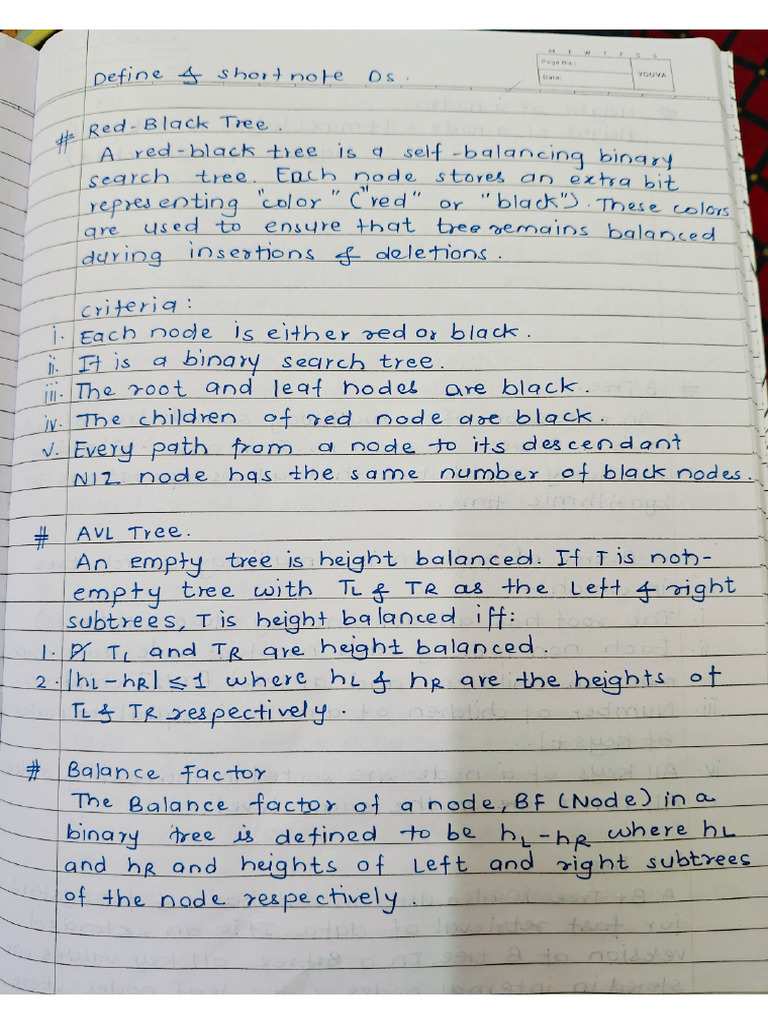 M T W T F S S
Page No.:
Date:
YOUVA
Define & shortnote Ds.
# Red-Black Tree.
A red-black tree is a self-balancing binary
search tree. Each node stores an extra bit
representing "color" ("red" or "black"). These colors
are used to ensure that tree remains balanced
during insertions & deletions.
criteria:
i. Each node is either red or black.
ii. It is a binary search tree.
iii. The root and leaf nodes are black.
iv. The children of red node are black.
v. Every path from a node to its descendant
NIL node has the same number of black nodes.
# AVL Tree.
An empty tree is height balanced. If T is non-
empty tree with TL & TR as the Left & right
subtrees, T is height balanced iff:
1. TL and TR are height balanced.
2. |hL-hR| ≤ 1 where hL & hR are the heights of
TL & TR respectively.
# Balance Factor
The Balance factor of a node, BF (Node) in a
binary tree is defined to be hL-hR where hL
and hR and heights of Left and right subtrees
of the node respectively.